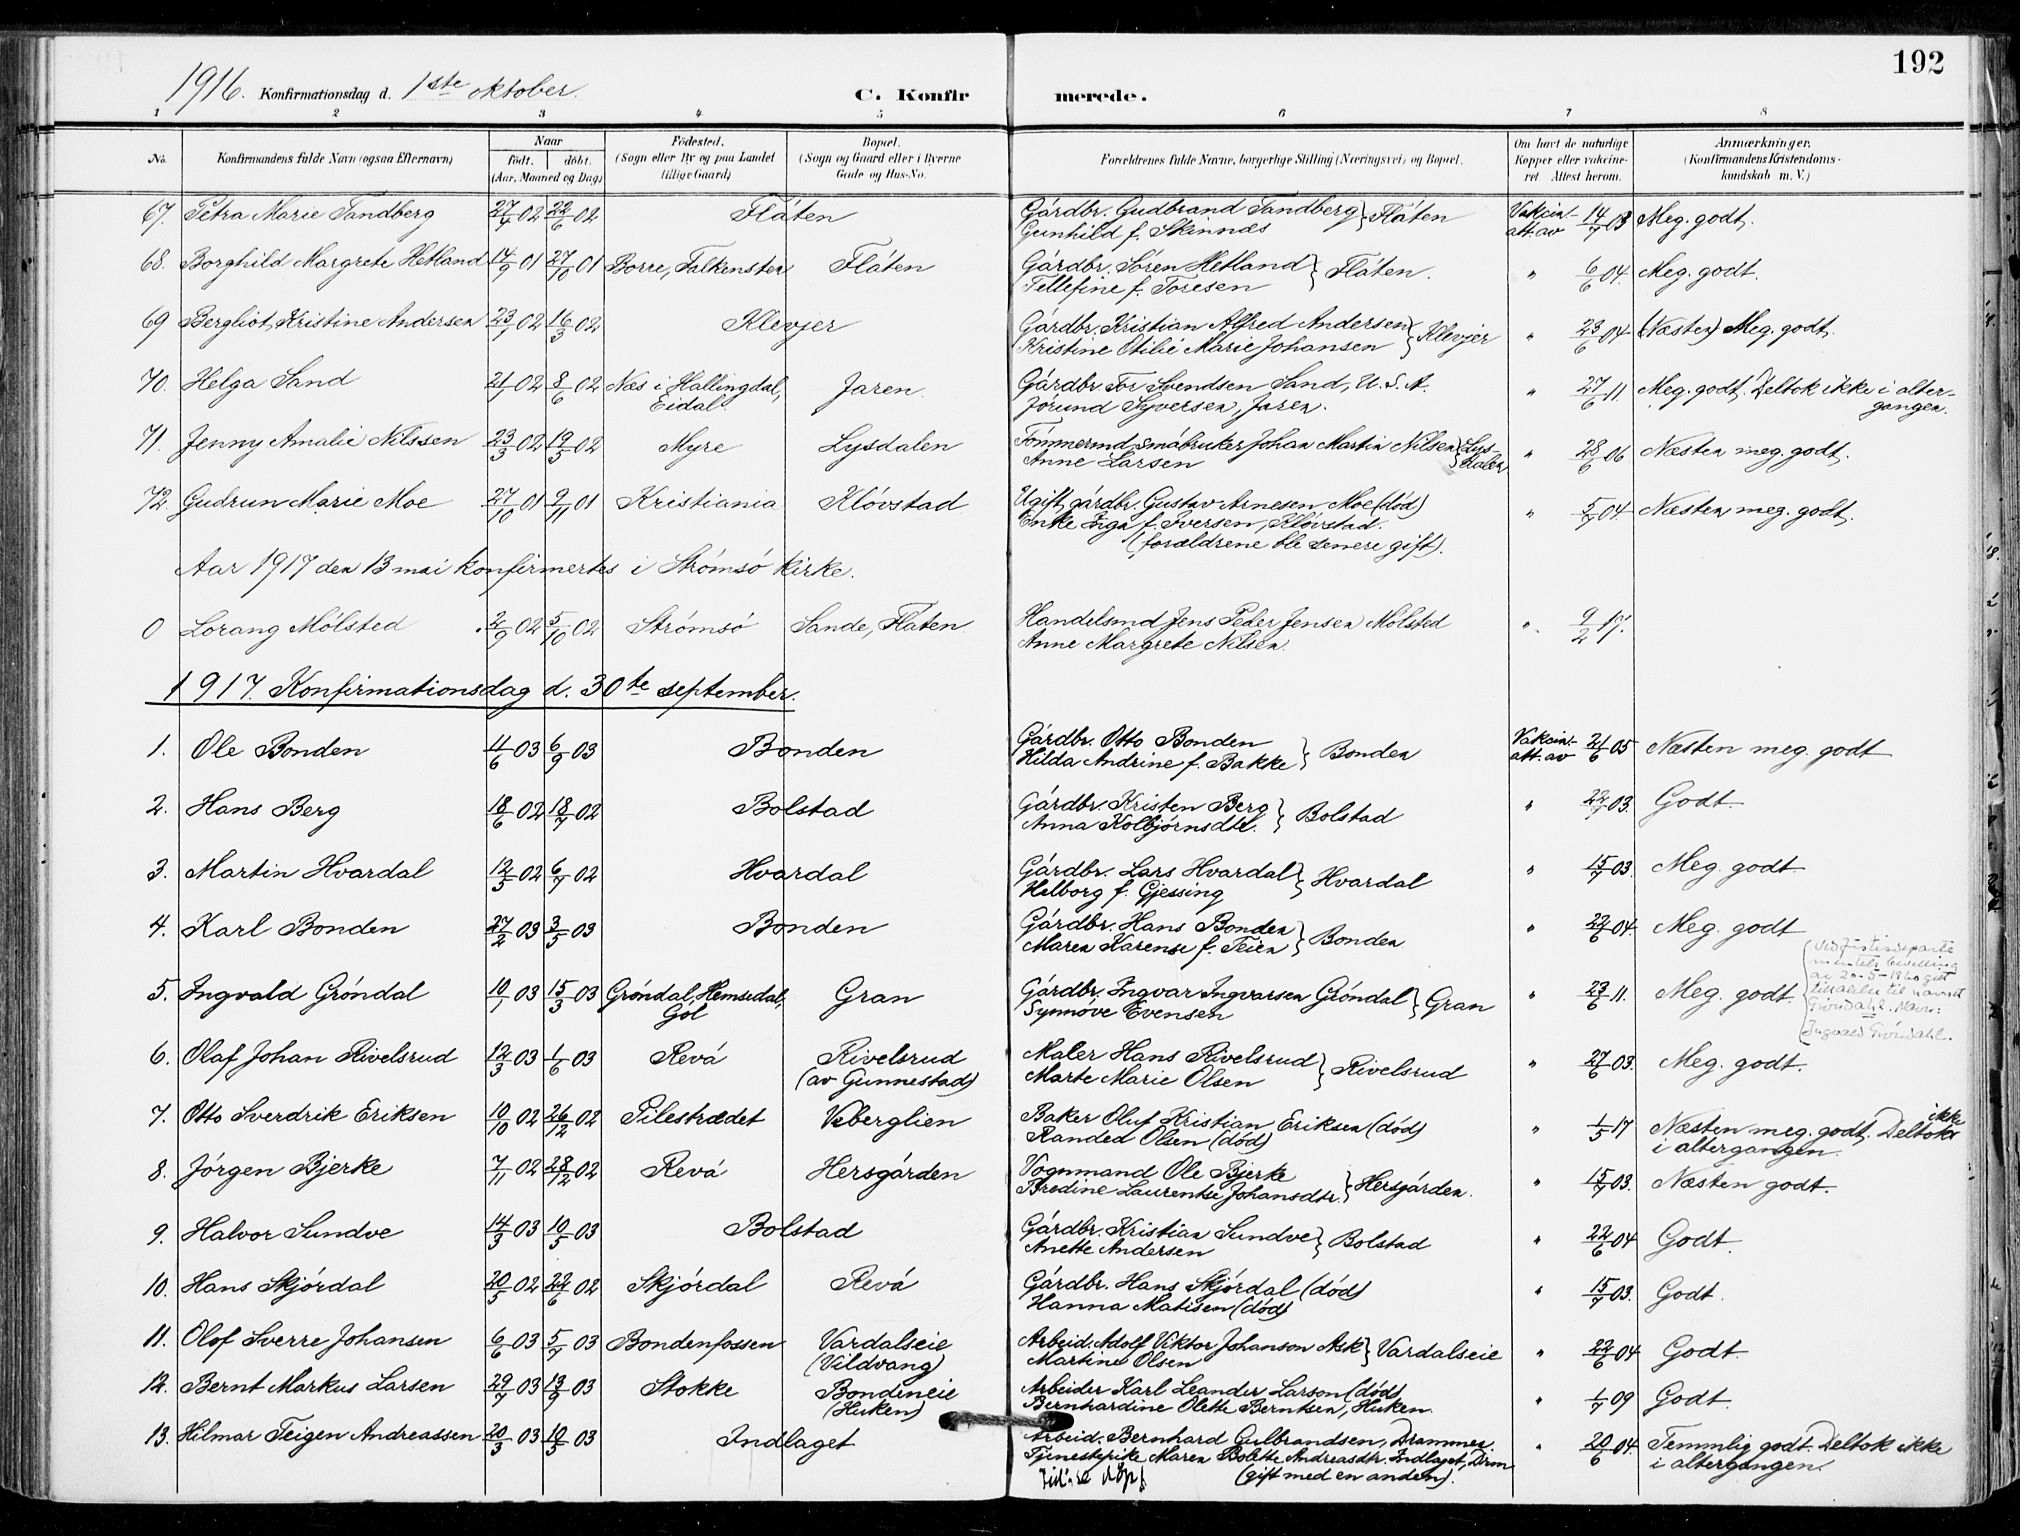 192
1916. Konfirmationsdag d. 1ste oktober. C. Konfirmerede.
1 2 3 4 5 6 7 8
No. Konfirmandens fulde Navn (ogsaa Efternavn) Naar født. døbt. (Aar, Maaned og Dag) Fødested. (Sogn eller By og paa Landet tillige Gaard) Bopæl. (Sogn og Gaard eller i Byerne Gade og Hus-No. Forældrenes fulde Navne, borgerlige Stilling (Næringsvei) og Bopæl. Om havt de naturlige Kopper eller vakcineret. Attest herom. Anmærkninger. (Konfirmandens Kristendomskundskab m. V.)
67. Petra Marie Sandberg 27/4 02 22/6 02 Flåten Gårdbr. Gudbrand Sandberg } Flåten Vakcin.- 14/7 03 Meg. godt.
Gunhild f. Skinnæs att. av
68. Borghild Margrete Hetland 14/9 01 27/10 01 Borre, Falkensten Flåten Gårdbr. Søren Hetland } Flåten. " 6/6 04. Meg. godt.
Tellefine f. Toresen
69 Bergliot Kristine Andersen 23/1 02 16/3 02 Klevjer Gårdbr. Kristian Alfred Andersen } Klevjer " 23/6 04 (Næsten) Meg. godt.
Kristine Otilie Marie Johansen
70. Helga Sand 21/1 02 8/6 02 Næs i Hallingdal, Jaren. Gårdbr. Tor Svendsen Sand, U.S.A. " 27/6 11. Meg. godt. Deltok ikke i alter-
Eidal. Jørund Syversen, Jaren. gangen.
71. Jenny Amalie Nilssen 23/3 02 19/5 02 Myre Lysdalen Tømmermd. småbruker Johan Martin Nilsen } Lys- " 28/6 06 Næsten meg. godt.
Anne Larsen dalen
72. Gudrun Marie Moe 27/10 01 9/11 01 Kristiania Kløvstad Ugift gårdbr. Gustav Arnesen Moe (død) " 5/7 04. Næsten meg. godt.
Enke Inga f. Iversen, Kløvstad.
(forældrene ble senere gift).
Aar 1917 den 13 mai konfirmertes i Strømsø kirke.
0 Lorang Mølsted 2/9 02 5/10 02 Strømsø Sande, Flåten. Handelsmd Jens Peder Jensen Mølsted " 9/2 17.
Anne Margrete Nilsen.
1917. Konfirmationsdag d. 30te september.
1. Ole Bonden 4/6 03 6/9 03 Bonden Gårdbr. Otto Bonden } Bonden Vakcin.- 21/6 05 Næsten meg. godt
Hilda Andrine f. Bakke att. av
2. Hans Berg 18/6 02 18/7 02 Bolstad Gårdbr. Kristen Berg } Bolstad " 22/7 03. Godt
Anna Kolbjørnsdtr.
3. Martin Hvardal 12/5 02 6/7 02 Hvardal Gårdbr. Lars Hvardal } Hvardal " 15/7 03. Meg. godt
Helborg f. Gjessing
4. Karl Bonden 27/2 03 3/5 03 Bonden Gårdbr. Hans Bonden } Bonden " 22/6 04. Meg. godt
Maren Karense f. Teien
5. Ingvald Grøndal 10/1 03 15/3 03 Grøndal, Hemsedal, Gran Gårdbr. Ingvar Ingvarsen Grøndal } Gran " 23/6 11. Meg. godt.
Gol Synnøve Evensen
ved Justisdeparte
mentets bevilling
av 20-5-1960 gitt
tillatelse til navnet
Grøndahl. Navn:
Ingvald Grøndahl.
6. Olaf Johan Rivelsrud 12/3 03 1/6 03 Revå Rivelsrud Maler Hans Rivelsrud } Rivelsrud " 27/6 03. Meg. godt.
(av Gunnestad) Marte Marie Olsen
7. Otto Sverdrik Eriksen 10/10 02 26/12 02 Pilestrædet Veberglien Baker Oluf Kristian Eriksen (død) " 1/5 17 Næsten meg. godt. Deltok ikke
Randed Olsen (død) i altergangen.
8. Jørgen Bjerke 7/11 02 28/12 02 Revå Hersgården Vognmand Ole Bjerke } Hersgården. " 15/7 03. Næsten godt.
Bredine Laurentse Johansdtr.
9. Halvor Sundve 14/3 03 10/5 03 Bolstad Gårdbr. Kristian Sundve } Bolstad " 22/6 04 Godt.
Anette Andersen
10. Hans Skjørdal 20/5 02 22/6 02 Skjørdal Revå Gårdbr. Hans Skjørdal (død) " 15/7 03. Godt.
Hanna Matisen (død)
11. Olof Sverre Johansen 6/6 03 5/7 03 Bondenfossen Vardalseie Arbeid. Adolf Viktor Johanson Ask } Vardalseie " 22/6 04 Godt.
(Vildvang) Martine Olsen
12. Bernt Markus Larsen 29/7 03 13/9 03 Stokke Bondeneie Arbeider Karl Leander Larson (død) " 1/7 09 Godt.
(Huken) Bernhardine Olette Berntsen, Huken.
13. Hilmar Teigen Andreassen 20/3 03 10/5 03 Indlaget Arbeid. Bernhard Gulbrandsen, Drammen. " 20/6 04. Temmlig godt. Deltok ikke
Tjenestepike Maren Bolette Andreasdtr. Indlaget, Drm i altergangen.
(gift med en anden).